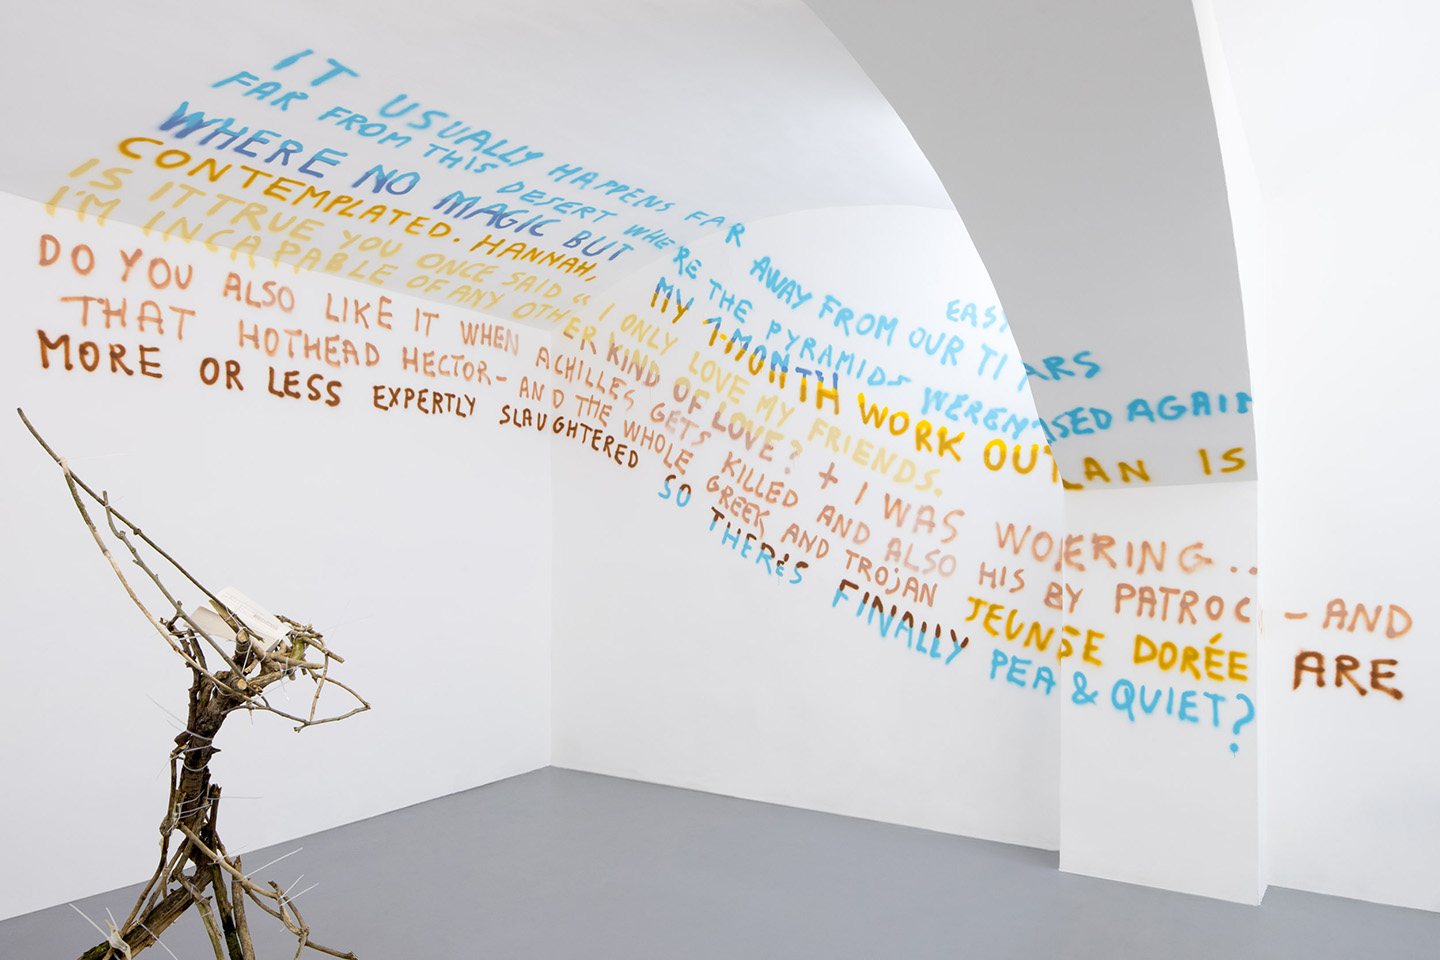 EASY
IT USUALLY HAPPENS FAR AWAY FROM OUR
FAR FROM THIS DESERT WHERE THE PYRAMIDS WEREN'T AGAIN
WHERE NO MAGIC BUT MY 1-MONTH WORK OUT LAN IS
CONTEMPLATED. HANNAH,
IS IT TRUE YOU ONCE SAID “ I ONLY LOVE MY FRIENDS.
I'M INCAPABLE OF ANY OTHER KIND OF LOVE? + I WAS WOERING...
DO YOU ALSO LIKE IT WHEN ACHILLES GETS KILLED AND ALSO HIS BY PATROC - AND
THAT HOTHEAD HECTOR- AND THE WHOLE GREEK AND TROJAN JEUNSE DORÉE ARE
MORE OR LESS EXPERTLY SLAUGHTERED SO THERES FINALLY PEA & QUIET?